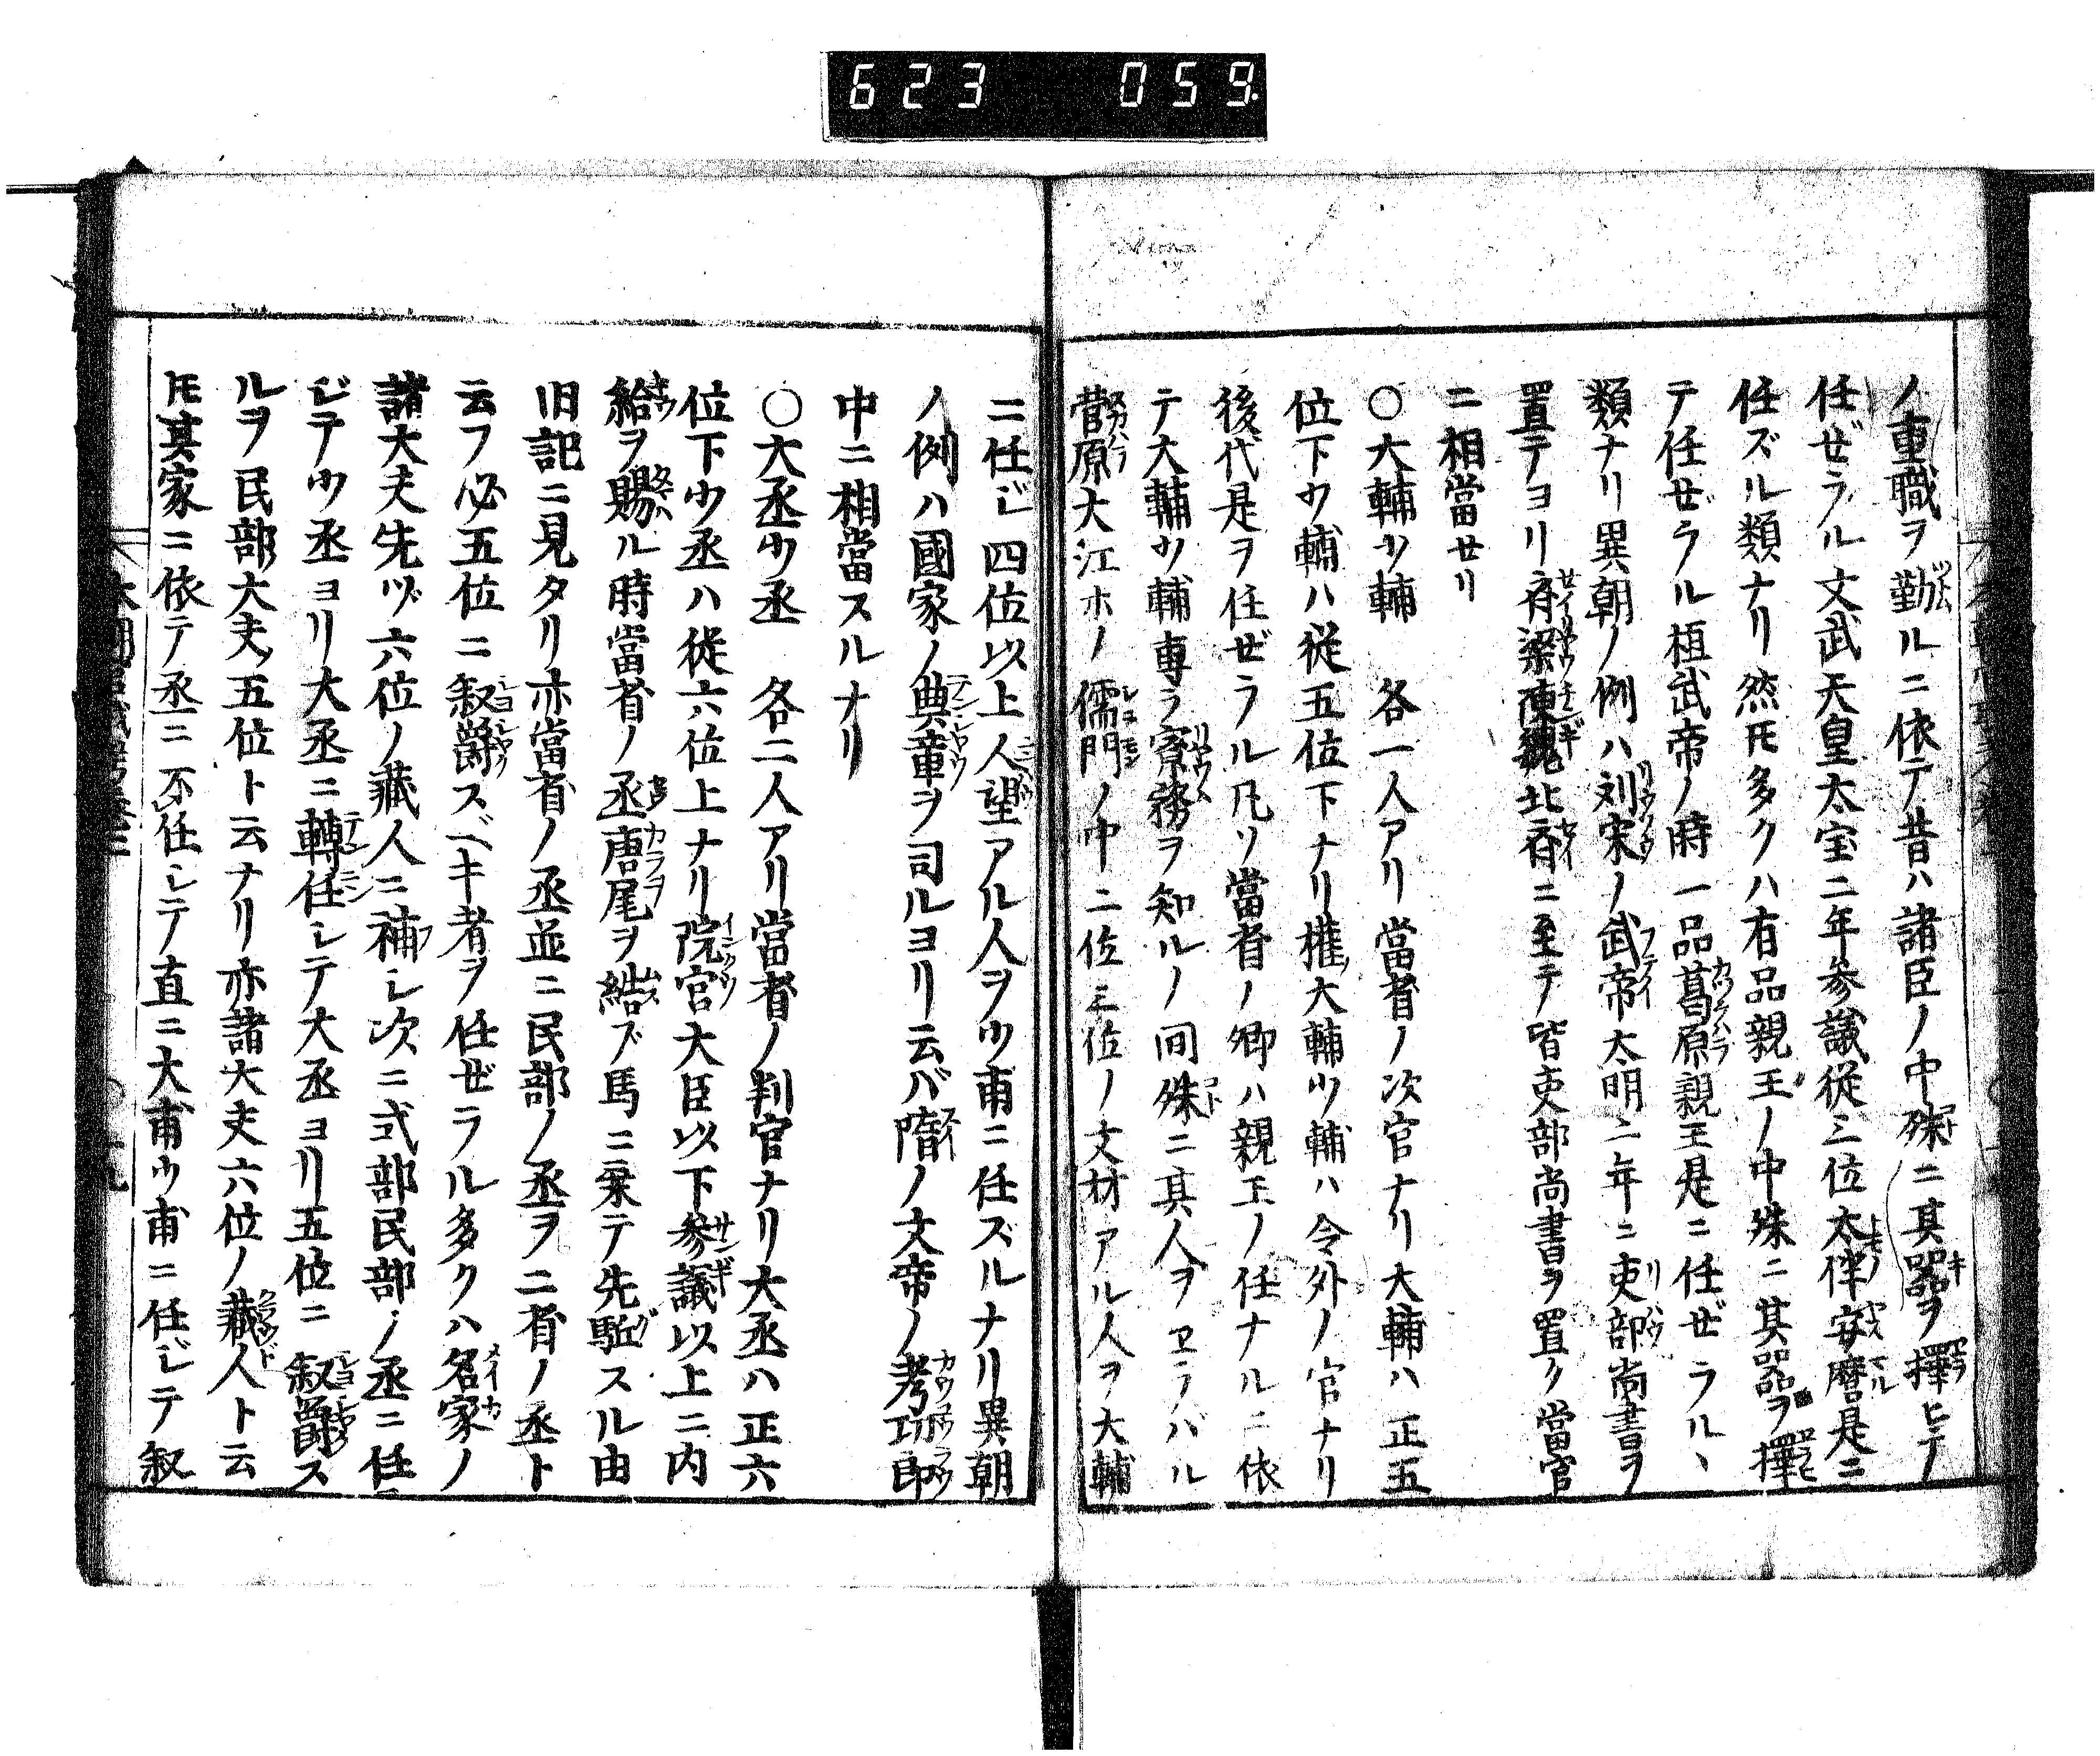 623 059
ノ重職ヲ勤ルニ依テ昔ハ諸臣ノ中殊ニ其器ヲ擇ヒテ
任ぜラル文武天皇太宝二年参議従三位大伴安麿是ニ
任ズル類ナリ然𪜈多クハ有品親王ノ中殊ニ其器ヲ擇
テ任ぜラル桓武帝ノ時一品葛原親王是ニ任ぜラルヽ
類ナリ異朝ノ例ハ刘宋ノ武帝太明二年ニ吏部尚書ヲ
置テヨリ斉梁陳魏北斉ニ至テノ皆吏部尚書ヲ置ク當官
ニ相當せリ
○大輔少輔　各一人アリ當省ノ次官ナリ大輔ハ正五
位下少輔ハ従五位下ナリ権大輔少輔ハ令外ノ官ナリ
後代是ヲ任ぜラル凡ソ當省ノ卿ハ親王ノ任ナルニ依
テ大輔少輔専ラ寮務ヲ知ルノ間殊ニ其人ヲヱラバル
菅原大江ホノ儒門ノ中二位三位ノ文材アル人ヲ大輔
ニ任じ四位以上人望アル人ヲ少甫ニ任ズルナリ異朝
ノ例ハ國家ノ典章ヲ司ルヨリ云バ隋ノ文帝ノ考功郎
中ニ相當スルナリ
○大丞少丞　各二人アリ當省ノ判官ナリ大丞ハ正六
位下少丞ハ従六位上ナリ院宮大臣以下参議以上ニ内
給ヲ賜ル時當省ノ丞唐尾ヲ結ズ馬ニ乗テ先駈スル由
旧記ニ見タリ亦當省ノ丞並ニ民部ノ丞ヲ二省ノ丞ト
云フ必五位ニ叙爵スベキ者ヲ任ぜラル多クハ名家ノ
諸大夫先ヅ六位ノ蔵人ニ補シ次ニ式部民部ノ丞ニ任
じテ少丞ヨリ大丞ニ轉任シテ大丞ヨリ五位ニ叙爵ス
ルヲ民部大夫五位ト云ナリ亦諸大夫六位ノ蔵人ト云
𪜈其家ニ依テ丞ニ不任シテ直ニ大甫少甫ニ任じテ叙